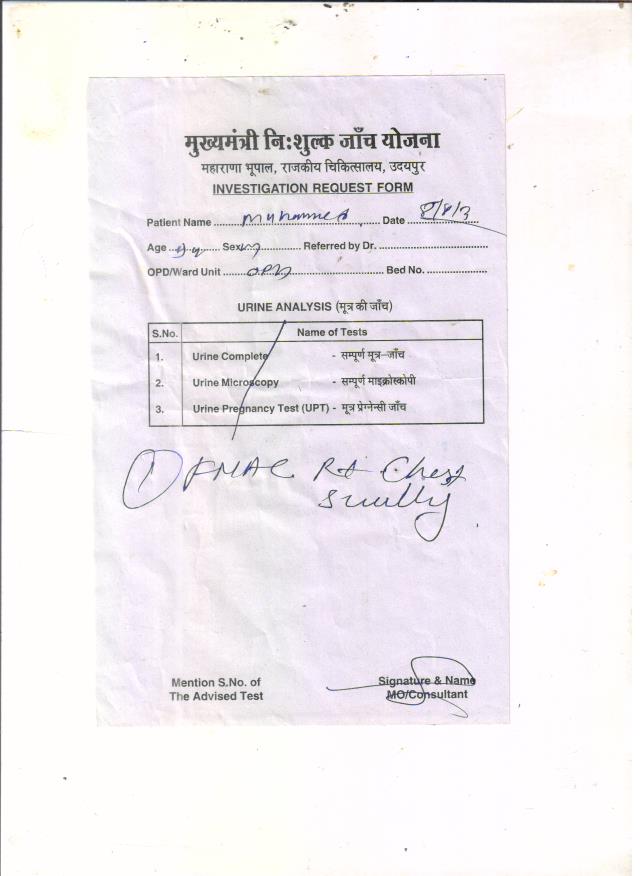 मुख्यमंत्री निःशुल्क जाँच योजना
महाराणा भूपाल, राजकीय चिकित्सालय, उदयपुर
INVESTIGATION REQUEST FORM
Patient Name ........................ Date ........................
Age ............ Sex ............ Referred by Dr. ........................
OPD/Ward Unit ........ OPD ........ Bed No. ....................
URINE ANALYSIS (मूत्र की जाँच)
S.No. Name of Tests
1. Urine Complete - सम्पूर्ण मूत्र–जाँच
2. Urine Microscopy - सम्पूर्ण माइक्रोस्कोपी
3. Urine Pregnancy Test (UPT) - मूत्र प्रेग्नेन्सी जाँच
① FNAC Rt Chest
Swelling
Mention S.No. of
The Advised Test
Signature & Name
MO/Consultant